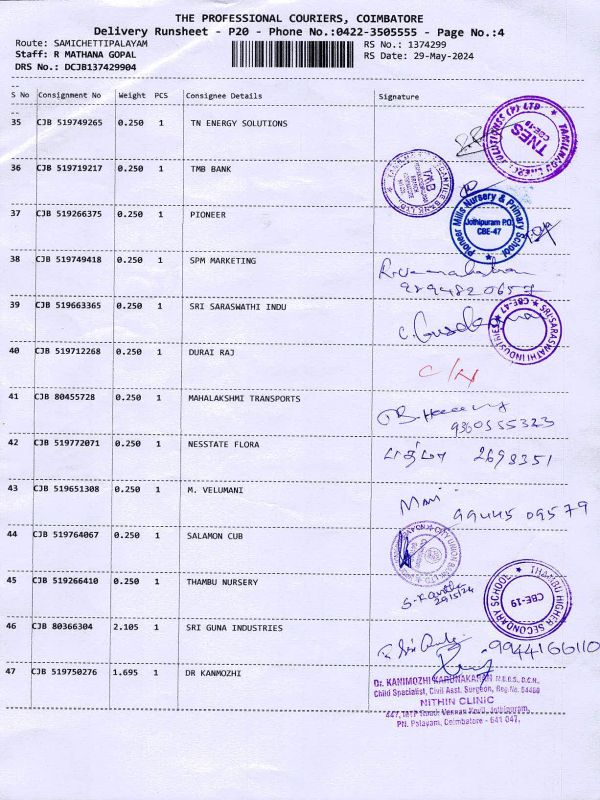 THE PROFESSIONAL COURIERS, COIMBATORE
Delivery Runsheet - P20 - Phone No.:0422-3505555 - Page No.:4
Route: SAMICHETTIPALAYAM RS No.: 1374299
Staff: R MATHANA GOPAL RS Date: 29-May-2024
DRS No.: DCJB137429904
S No Consignment No Weight PCS Consignee Details Signature
35 CJB 519749265 0.250 1 TN ENERGY SOLUTIONS
TNES
CBE-19
36 CJB 519719217 0.250 1 TMB BANK
TMB
37 CJB 519266375 0.250 1 PIONEER
Pioneer Mills Nursery & Primary School
Jothipuram P.O
CBE-47
38 CJB 519749418 0.250 1 SPM MARKETING
9894820657
39 CJB 519663365 0.250 1 SRI SARASWATHI INDU
SRI SARASWATHI INDUSTRIES
CBE-47
40 CJB 519712268 0.250 1 DURAI RAJ
41 CJB 80455728 0.250 1 MAHALAKSHMI TRANSPORTS
9360555323
42 CJB 519772071 0.250 1 NESSTATE FLORA
2698351
43 CJB 519651308 0.250 1 M. VELUMANI
Mani
99445 09579
44 CJB 519764067 0.250 1 SALAMON CUB
CITY UNION BANK LTD
45 CJB 519266410 0.250 1 THAMBU NURSERY
29/5/24
THAMBU HIGHER SECONDARY SCHOOL
CBE-19
46 CJB 80366304 2.105 1 SRI GUNA INDUSTRIES
9944166110
47 CJB 519750276 1.695 1 DR KANMOZHI
Dr. KANIMOZHI KARUNAKARAN M.B.B.S., D.C.H.,
Child Specialist, Civil Asst. Surgeon, Reg.No. 54460
NITHIN CLINIC
PN. Palayam, Coimbatore - 641 047.